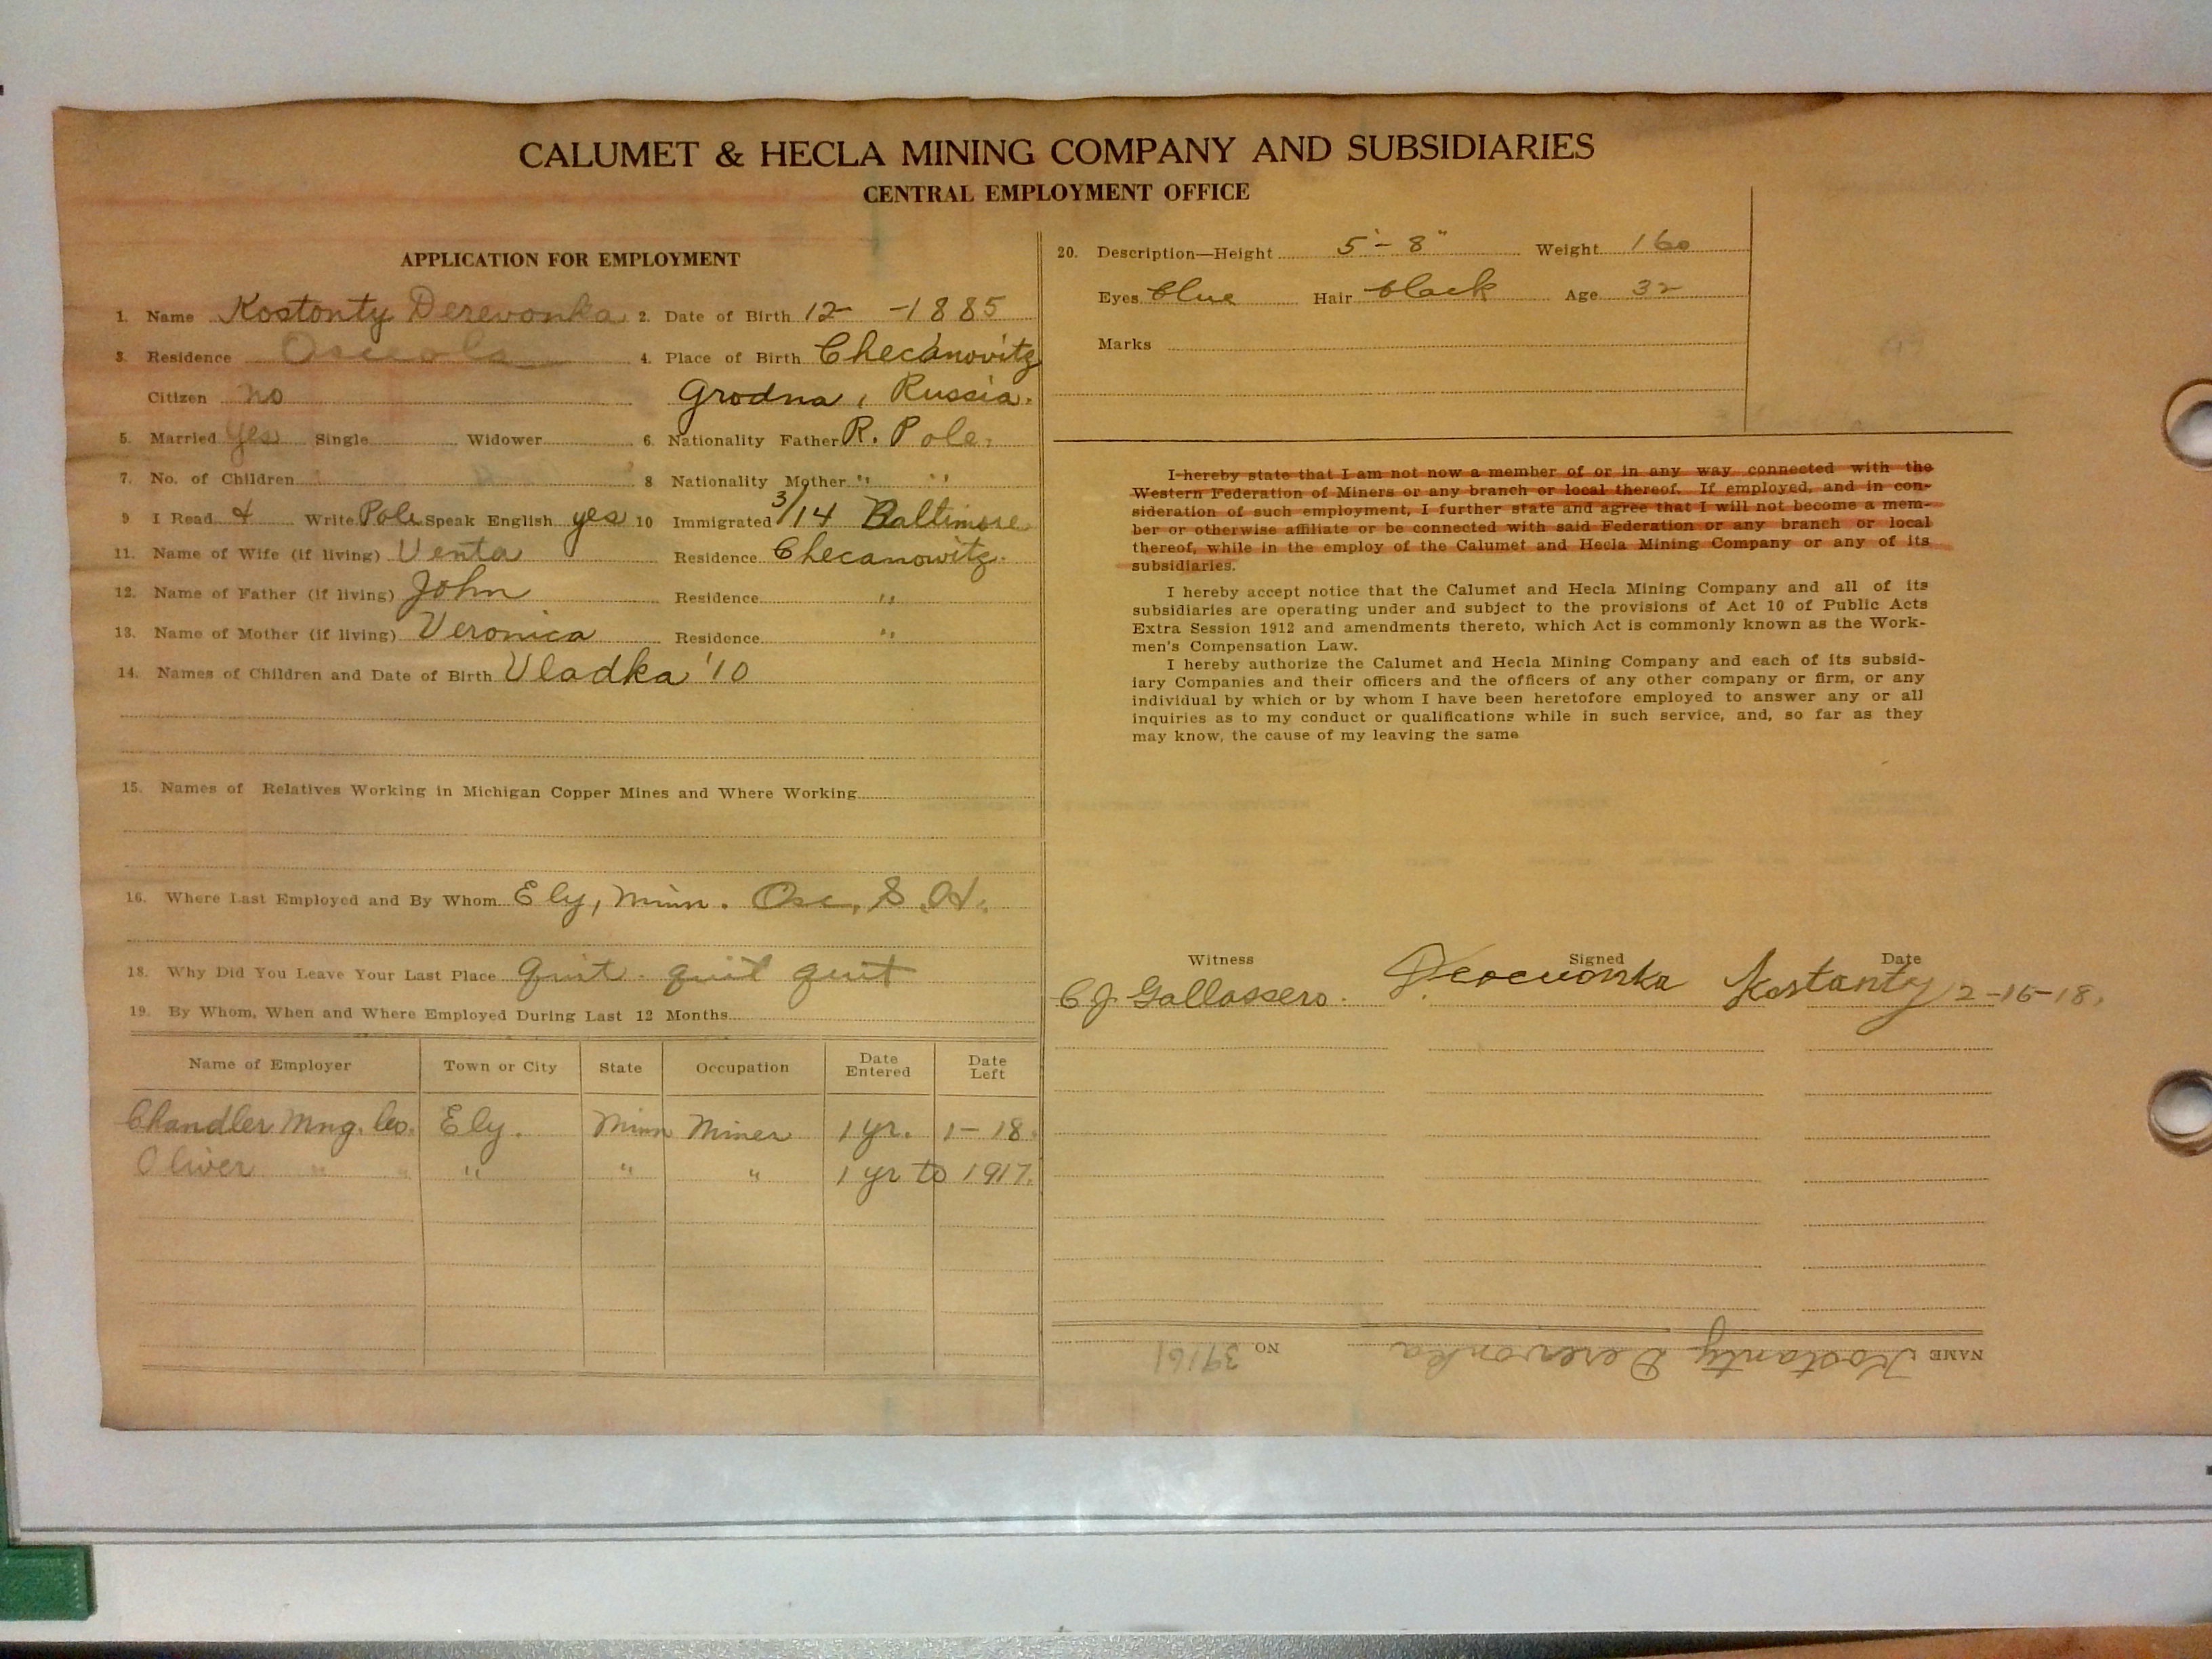 CALUMET & HECLA MINING COMPANY AND SUBSIDIARIES
CENTRAL EMPLOYMENT OFFICE
APPLICATION FOR EMPLOYMENT
1. Name Kostonty Derevonka 2. Date of Birth 12 - 1885
3. Residence Osceola 4. Place of Birth Checanovitz
Citizen no Grodna, Russia.
5. Married yes Single Widower 6. Nationality Father R. Pole.
7. No. of Children 8 Nationality Mother " "
9 I Read & Write Pole Speak English yes 10 Immigrated 3/14 Baltimore
11. Name of Wife (if living) Venta Residence Checanowitz.
12. Name of Father (if living) John Residence "
13. Name of Mother (if living) Veronica Residence "
14. Names of Children and Date of Birth Vladka '10
15. Names of Relatives Working in Michigan Copper Mines and Where Working
16. Where Last Employed and By Whom Ely, Minn. Osc. S.
18. Why Did You Leave Your Last Place quit. quit quit
19. By Whom, When and Where Employed During Last 12 Months
Name of Employer Town or City State Occupation Date Entered Date Left
Chandler Mng. Co. Ely. Minn Miner 1 yr. 1-18.
Oliver " " " " " 1 yr to 1917.
20. Description—Height 5'-8" Weight 160
Eyes blue Hair black Age 32
Marks
I hereby state that I am not now a member of or in any way connected with the
Western Federation of Miners or any branch or local thereof. If employed, and in con-
sideration of such employment, I further state and agree that I will not become a mem-
ber or otherwise affiliate or be connected with said Federation or any branch or local
thereof, while in the employ of the Calumet and Hecla Mining Company or any of its
subsidiaries.
I hereby accept notice that the Calumet and Hecla Mining Company and all of its
subsidiaries are operating under and subject to the provisions of Act 10 of Public Acts
Extra Session 1912 and amendments thereto, which Act is commonly known as the Work-
men's Compensation Law.
I hereby authorize the Calumet and Hecla Mining Company and each of its subsid-
iary Companies and their officers and the officers of any other company or firm, or any
individual by which or by whom I have been heretofore employed to answer any or all
inquiries as to my conduct or qualifications while in such service, and, so far as they
may know, the cause of my leaving the same
Witness Signed Date
C J Gallassero. Derewonka Kostanty 2-15-18.
NAME Kostanty Derevonka NO 39161